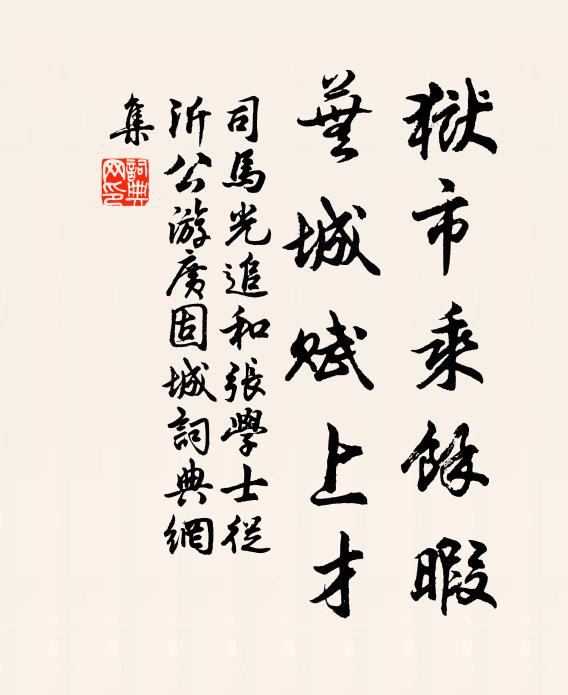 獄市乘餘暇
蕪城賦上才
司馬光追和張學士從
沂公游廣固城詞典網
集
詞典
网印